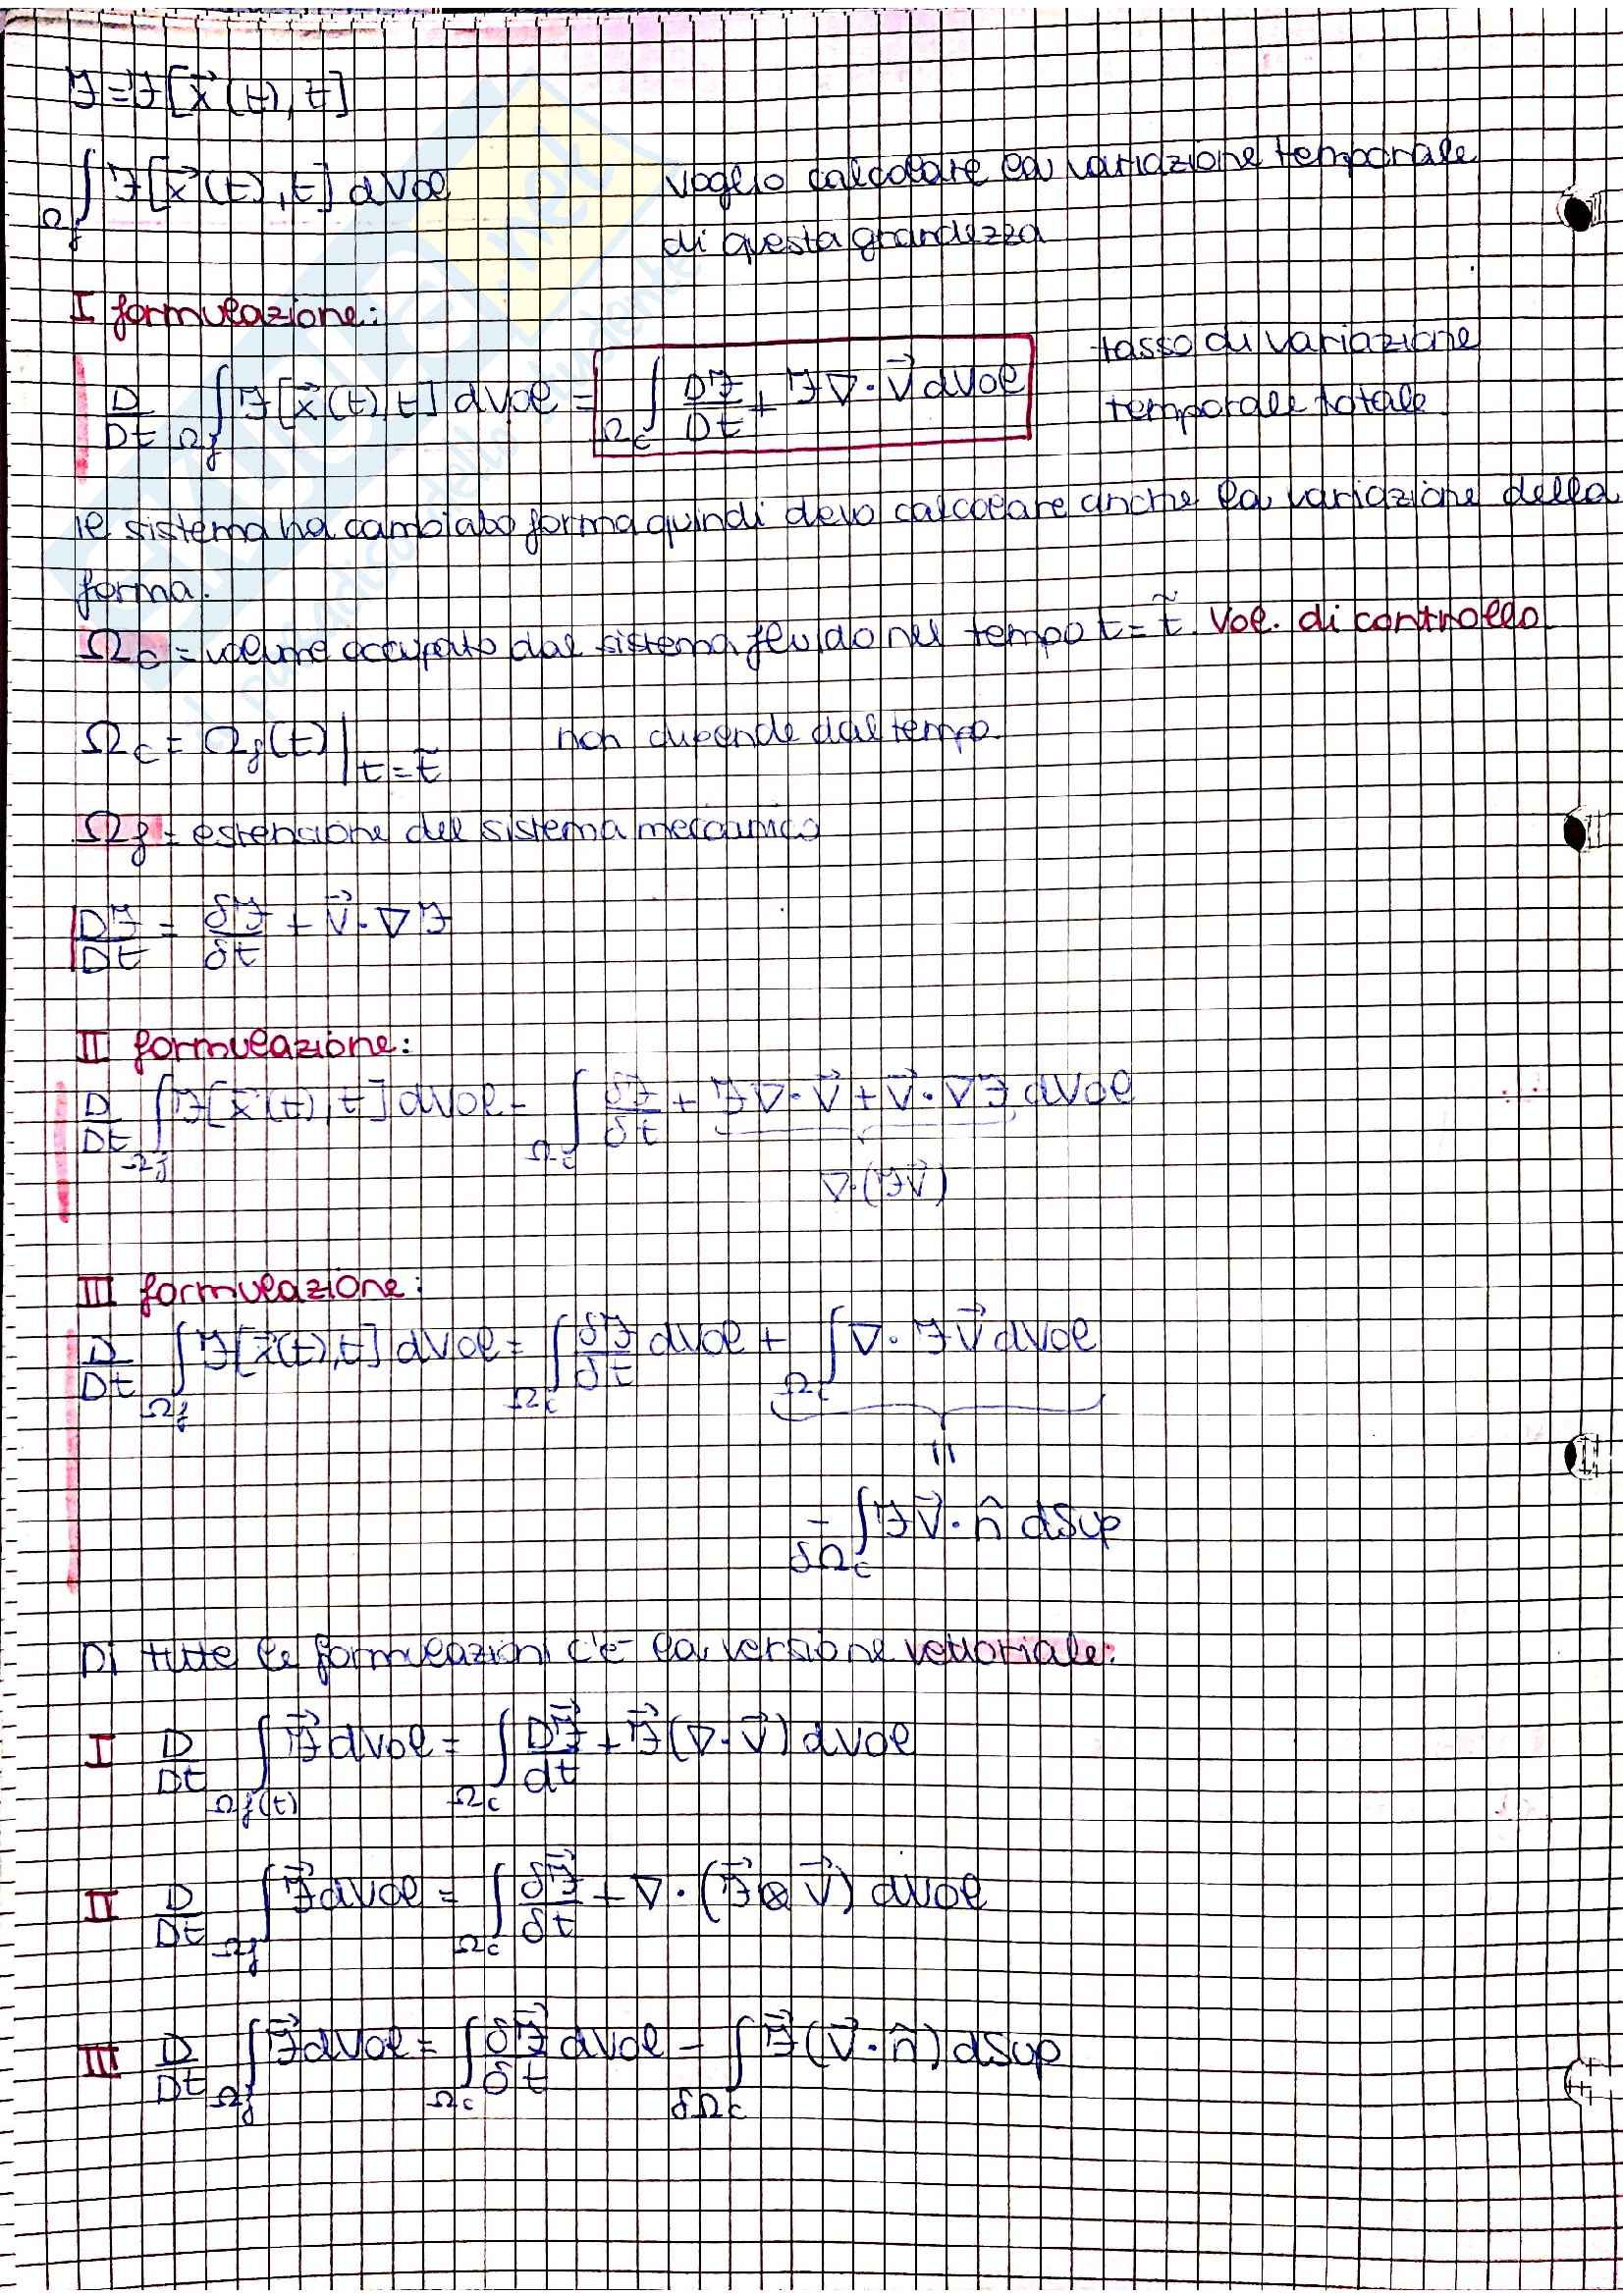 ℱ = ℱ[x⃗(t), t]
∫_Ωf ℱ[x⃗(t), t] dVol voglio calcolare la variazione temporale
di questa grandezza
I formulazione:
D/Dt ∫_Ωf ℱ[x⃗(t) t] dVol = ∫_Ωc Dℱ/Dt + ℱ∇·V⃗ dVol tasso di variazione
temporale totale
il sistema ha cambiato forma quindi devo calcolare anche la variazione della
forma.
Ωc = volume occupato dal sistema fluido nel tempo t = t̃. Vol. di controllo
Ωc = Ωf(t)|t=t̃ non dipende dal tempo.
Ωf = estensione del sistema meccanico
Dℱ/Dt = δℱ/δt + V⃗·∇ℱ
II formulazione:
D/Dt ∫_Ωf ℱ[x⃗(t), t] dVol = ∫_Ωc δℱ/δt + ℱ∇·V⃗ + V⃗·∇ℱ dVol
∇·(ℱV⃗)
III formulazione:
D/Dt ∫_Ωf ℱ[x⃗(t), t] dVol = ∫_Ωc δℱ/δt dVol + ∫_Ωc ∇·ℱV⃗ dVol
=
- ∫_δΩc ℱV⃗·n̂ dSup
Di tutte le formulazioni c'è la versione vettoriale:
I D/Dt ∫_Ωf(t) ℱ⃗ dVol = ∫_Ωc Dℱ⃗/dt + ℱ⃗(∇·V⃗) dVol
II D/Dt ∫_Ωf ℱ⃗ dVol = ∫_Ωc δℱ⃗/δt + ∇·(ℱ⃗⊗V⃗) dVol
III D/Dt ∫_Ωf ℱ⃗ dVol = ∫_Ωc δℱ⃗/δt dVol - ∫_δΩc ℱ⃗(V⃗·n̂) dSup